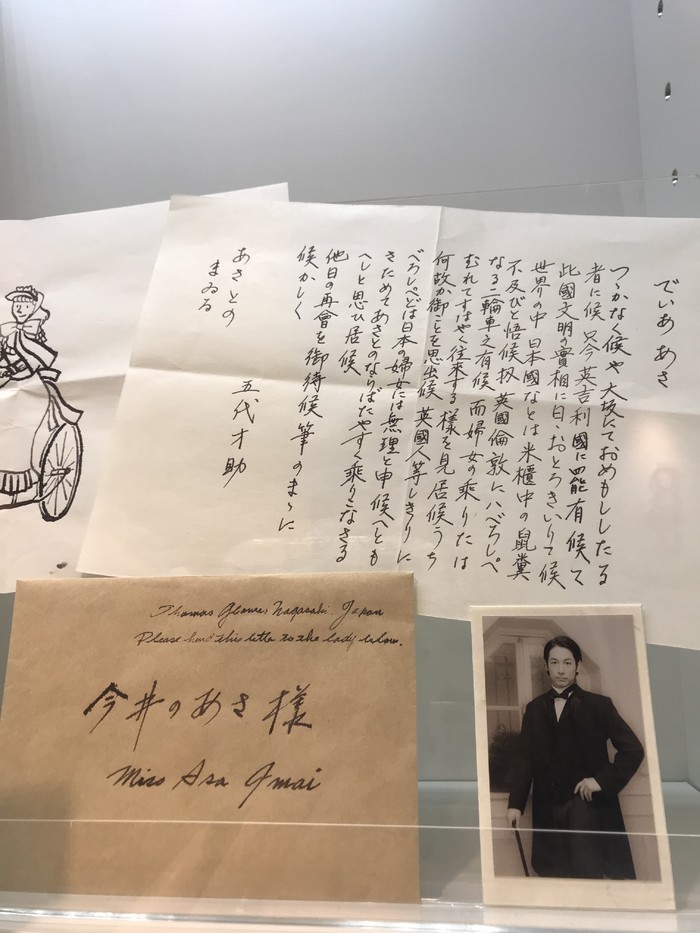 でいあ あさ
つゝがなく候や 大坂にておめもじしたる
者に候 只今英吉利國に罷有候て
此國文明の實相に日々おとろきいりて候
世界の中 日本國などは 米櫃中の鼠糞
不及びと悟候 扨 英國倫敦にハべろしぺ
なる二輪車之有候 而婦女の乗りたは
むれてすばやく往来する 様を見居候うち
何故か御ことを思出候 英國人等しきりに
べろしぺどは日本の婦女には無理と申候へとも
きためてあさとのならばたやすく乗りこなさる
へしと思ひ居候
他日の再會を御待候 筆のまゝに
候かしく
五代才助
あさとの
まゐる
Thomas Glover, Nagasaki, Japan
Please hand this letter to the lady below.
今井のあさ様
Miss Asa Imai